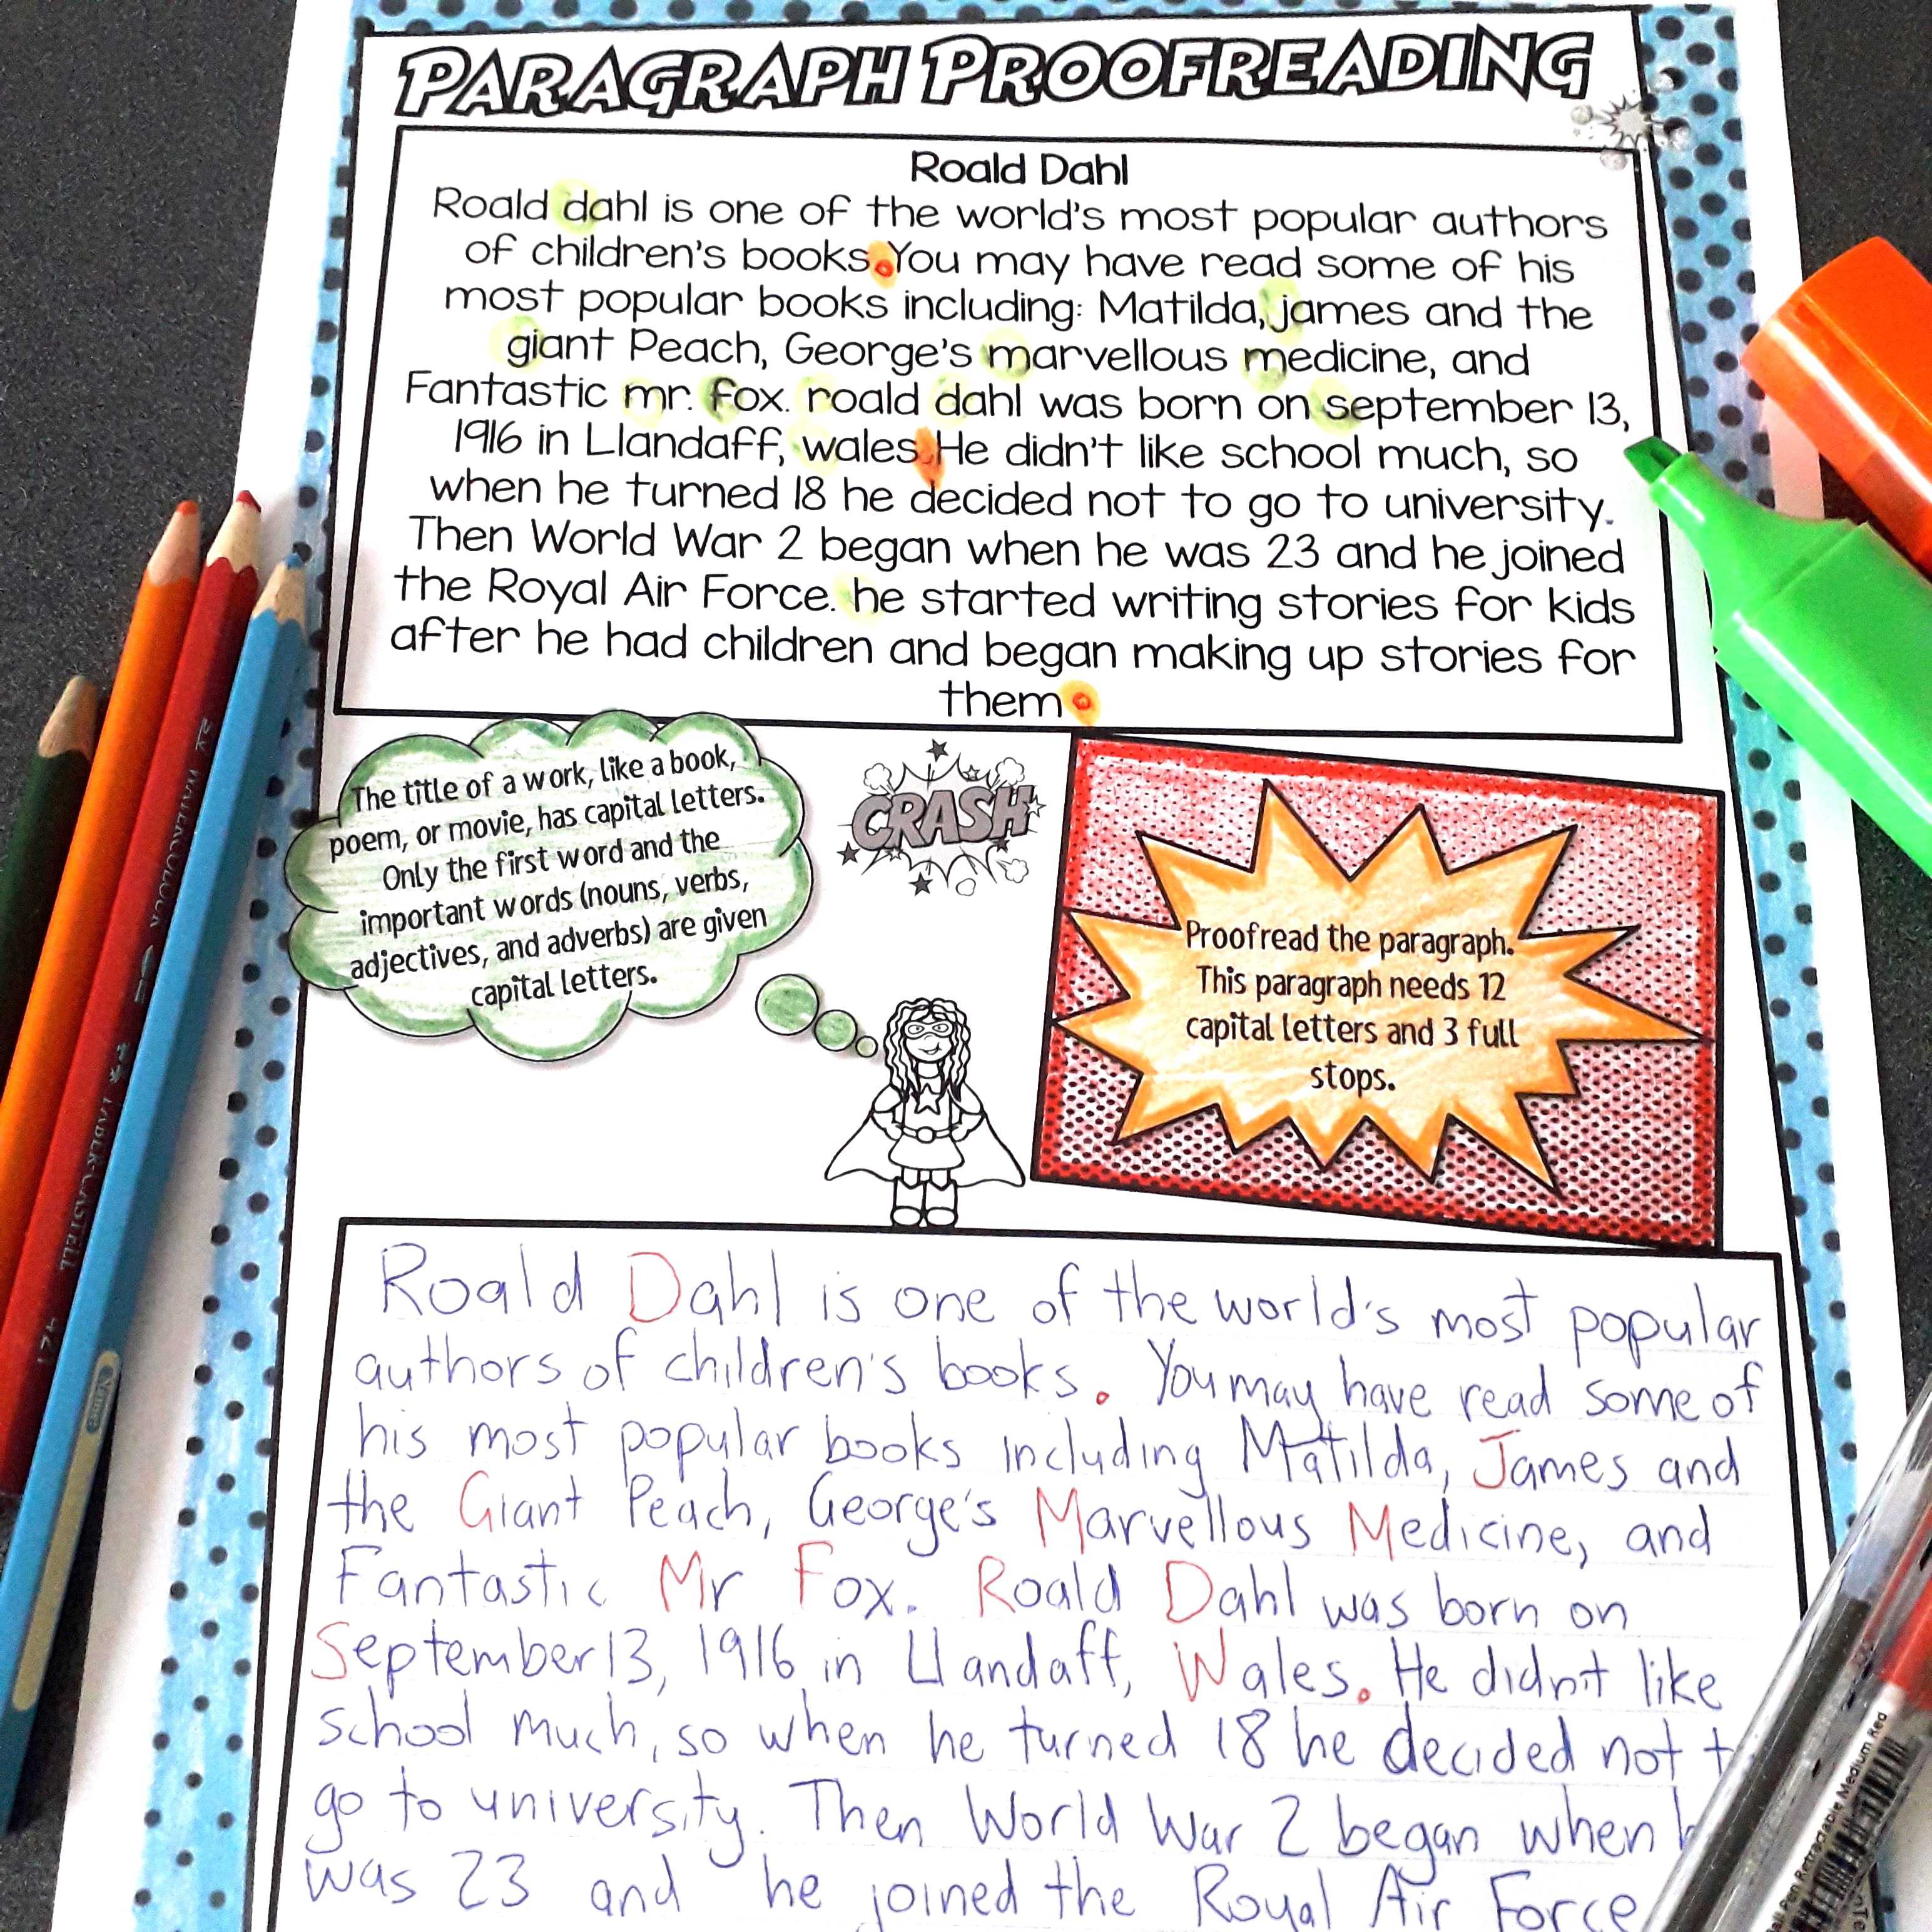 PARAGRAPH PROOFREADING
Roald Dahl
Roald dahl is one of the world's most popular authors
of children's books.You may have read some of his
most popular books including: Matilda, james and the
giant Peach, George's marvellous medicine, and
Fantastic mr. fox. roald dahl was born on september 13,
1916 in Llandaff, wales.He didn't like school much, so
when he turned 18 he decided not to go to university.
Then World War 2 began when he was 23 and he joined
the Royal Air Force. he started writing stories for kids
after he had children and began making up stories for
them.
The title of a work, like a book,
poem, or movie, has capital letters.
Only the first word and the
important words (nouns, verbs,
adjectives, and adverbs) are given
capital letters.
CRASH
Proofread the paragraph.
This paragraph needs 12
capital letters and 3 full
stops.
Roald Dahl is one of the world's most popular
authors of children's books. You may have read some of
his most popular books including Matilda, James and
the Giant Peach, George's Marvellous Medicine, and
Fantastic Mr Fox. Roald Dahl was born on
September 13, 1916 in Llandaff, Wales. He didn't like
school much, so when he turned 18 he decided not
go to university. Then World War 2 began when
was 23 and he joined the Royal Air Force
Pen Retractable Medium Red